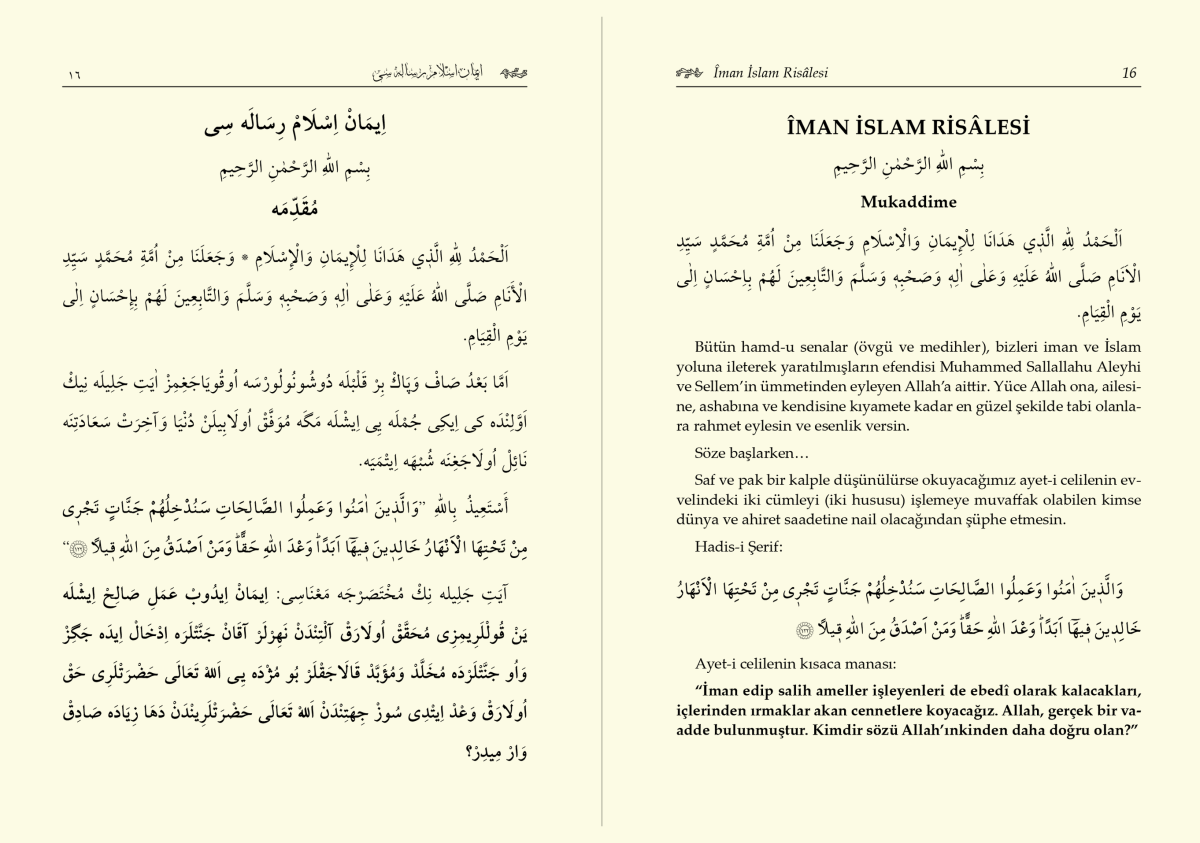 ١٦ ايمان اسلام رساله سى
اِيمَانْ اِسْلَامْ رِسَالَه سِى
بِسْمِ اللهِ الرَّحْمٰنِ الرَّحِيمِ
مُقَدِّمَه
اَلْحَمْدُ لِلّٰهِ الَّذٖي هَدَانَا لِلْإِيمَانِ وَالْإِسْلَامِ * وَجَعَلَنَا مِنْ اُمَّةِ مُحَمَّدٍ سَيِّدِ
الْأَنَامِ صَلَّى اللهُ عَلَيْهِ وَعَلٰى اٰلِهٖ وَصَحْبِهٖ وَسَلَّمَ وَالتَّابِعِينَ لَهُمْ بِإِحْسَانٍ اِلٰى
يَوْمِ الْقِيَامِ.
اَمَّا بَعْدُ صَافْ وَپَاكْ بِرْ قَلْبْلَه دُوشُونُولُورْسَه اُوقُويَاجَغِمِزْ اٰيَتِ جَلِيلَه نِيكْ
اَوَّلِنْدَه كى اِيكِى جُمْلَه يِى اِيشْلَه مَگَه مُوَفَّقْ اُولَابِيلَنْ دُنْيَا وَآخِرَتْ سَعَادَتِنَه
نَائِلْ اُولَاجَغِنَه شُبْهَه اِيتْمَيَه.
أَسْتَعِيذُ بِاللهِ ”وَالَّذٖينَ اٰمَنُوا وَعَمِلُوا الصَّالِحَاتِ سَنُدْخِلُهُمْ جَنَّاتٍ تَجْرٖى
مِنْ تَحْتِهَا الْاَنْهَارُ خَالِدٖينَ فٖيهَٓا اَبَدًاؕ وَعْدَ اللهِ حَقًّاؕ وَمَنْ اَصْدَقُ مِنَ اللهِ قٖيلًا ﴿١٢٢﴾“
آيَتِ جَلِيلَه نِكْ مُخْتَصَرْجَه مَعْنَاسِى: اِيمَانْ اِيدُوبْ عَمَلِ صَالِحْ اِيشْلَه
يَنْ قُولْلَرِيمِزِى مُحَقَّقْ اُولَارَقْ آلْتِنْدَنْ نَهِرْلَرْ آقَانْ جَنَّتْلَرَه اِدْخَالْ اِيدَه جَگِزْ
وَاُو جَنَّتْلَرْدَه مُخَلَّدْ وَمُؤَبَّدْ قَالَاجَقْلَرْ بُو مُژْدَه يِى اَللهْ تَعَالَى حَضْرَتْلَرِى حَقْ
اُولَارَقْ وَعْدْ اِيتْدِى سُوزْ جِهَتِنْدَنْ اَللهْ تَعَالَى حَضْرَتْلَرِيندْنَ دَهَا زِيَادَه صَادِقْ
وَارْ مِيدِرْ؟
Îman İslam Risâlesi 16
ÎMAN İSLAM RİSÂLESİ
بِسْمِ اللهِ الرَّحْمٰنِ الرَّحِيمِ
Mukaddime
اَلْحَمْدُ لِلّٰهِ الَّذٖي هَدَانَا لِلْإِيمَانِ وَالْاِسْلَامِ وَجَعَلَنَا مِنْ اُمَّةِ مُحَمَّدٍ سَيِّدِ
الْاَنَامِ صَلَّى اللهُ عَلَيْهِ وَعَلٰى اٰلِهٖ وَصَحْبِهٖ وَسَلَّمَ وَالتَّابِعِينَ لَهُمْ بِاِحْسَانٍ اِلٰى
يَوْمِ الْقِيَامِ.
Bütün hamd-u senalar (övgü ve medihler), bizleri iman ve İslam
yoluna ileterek yaratılmışların efendisi Muhammed Sallallahu Aleyhi
ve Sellem’in ümmetinden eyleyen Allah’a aittir. Yüce Allah ona, ailesi-
ne, ashabına ve kendisine kıyamete kadar en güzel şekilde tabi olanla-
ra rahmet eylesin ve esenlik versin.
Söze başlarken…
Saf ve pak bir kalple düşünülürse okuyacağımız ayet-i celilenin ev-
velindeki iki cümleyi (iki hususu) işlemeye muvaffak olabilen kimse
dünya ve ahiret saadetine nail olacağından şüphe etmesin.
Hadis-i Şerif:
وَالَّذٖينَ اٰمَنُوا وَعَمِلُوا الصَّالِحَاتِ سَنُدْخِلُهُمْ جَنَّاتٍ تَجْرٖى مِنْ تَحْتِهَا الْاَنْهَارُ
خَالِدٖينَ فٖيهَٓا اَبَدًاؕ وَعْدَ اللهِ حَقًّاؕ وَمَنْ اَصْدَقُ مِنَ اللهِ قٖيلًا ﴿١٢٢﴾
Ayet-i celilenin kısaca manası:
“İman edip salih ameller işleyenleri de ebedî olarak kalacakları,
içlerinden ırmaklar akan cennetlere koyacağız. Allah, gerçek bir va-
adde bulunmuştur. Kimdir sözü Allah’ınkinden daha doğru olan?”